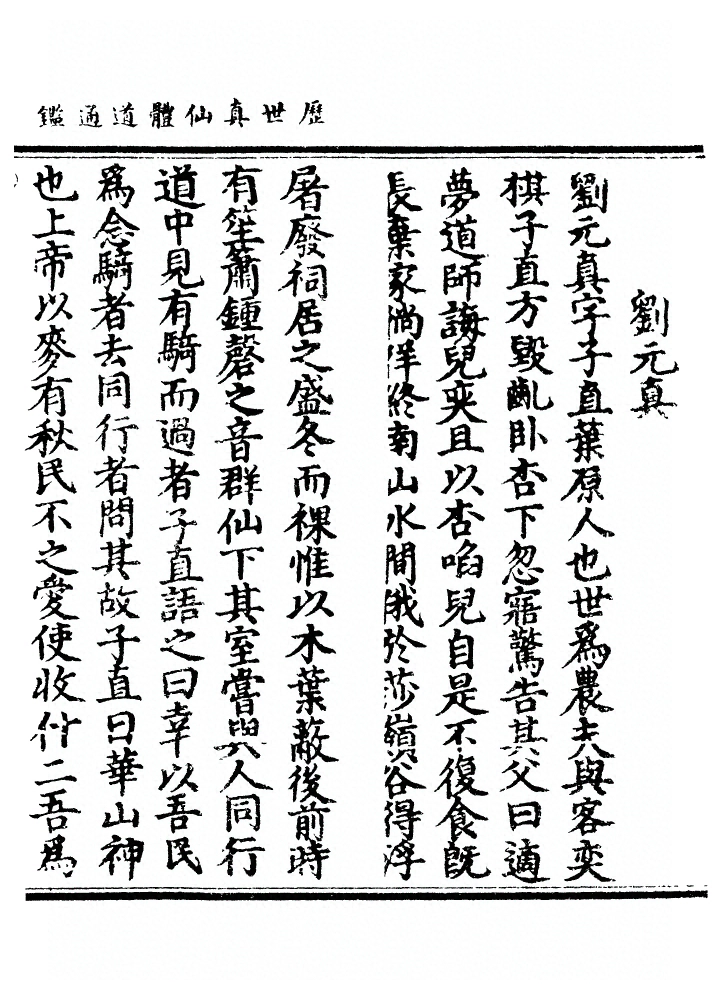 歷世真仙體道通鑑
劉元真
劉元真字子直葉原人也世爲農夫與客奕
棋子直方毀齓卧杏下忽寤驚告其父曰適
夢道師誨兒奕且以杏啗兒自是不復食旣
長棄家徜徉終南山水間俄於莎嶺谷得浮
屠廢祠居之盛冬而裸惟以木葉蔽後前時
有笙簫鍾磬之音群仙下其室嘗與人同行
道中見有騎而過者子直語之曰幸以吾民
爲念騎者去同行者問其故子直曰華山神
也上帝以麥有秋民不之愛使收什二吾爲